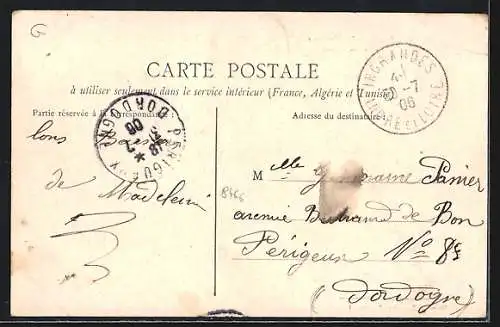 G
CARTE POSTALE
à utiliser seulement dans le service intérieur (France, Algérie et Tunisie)
Partie réservée à la correspondance
Adresse du destinataire
INGRANDES
INDRE ET LOIRE
4
-7
06
PERIGUEUX
DORDOGNE
de Madeleine
8466
Mlle Germaine Panier
avenue Bertrand de Bon
Périgueux No
(Dordogne